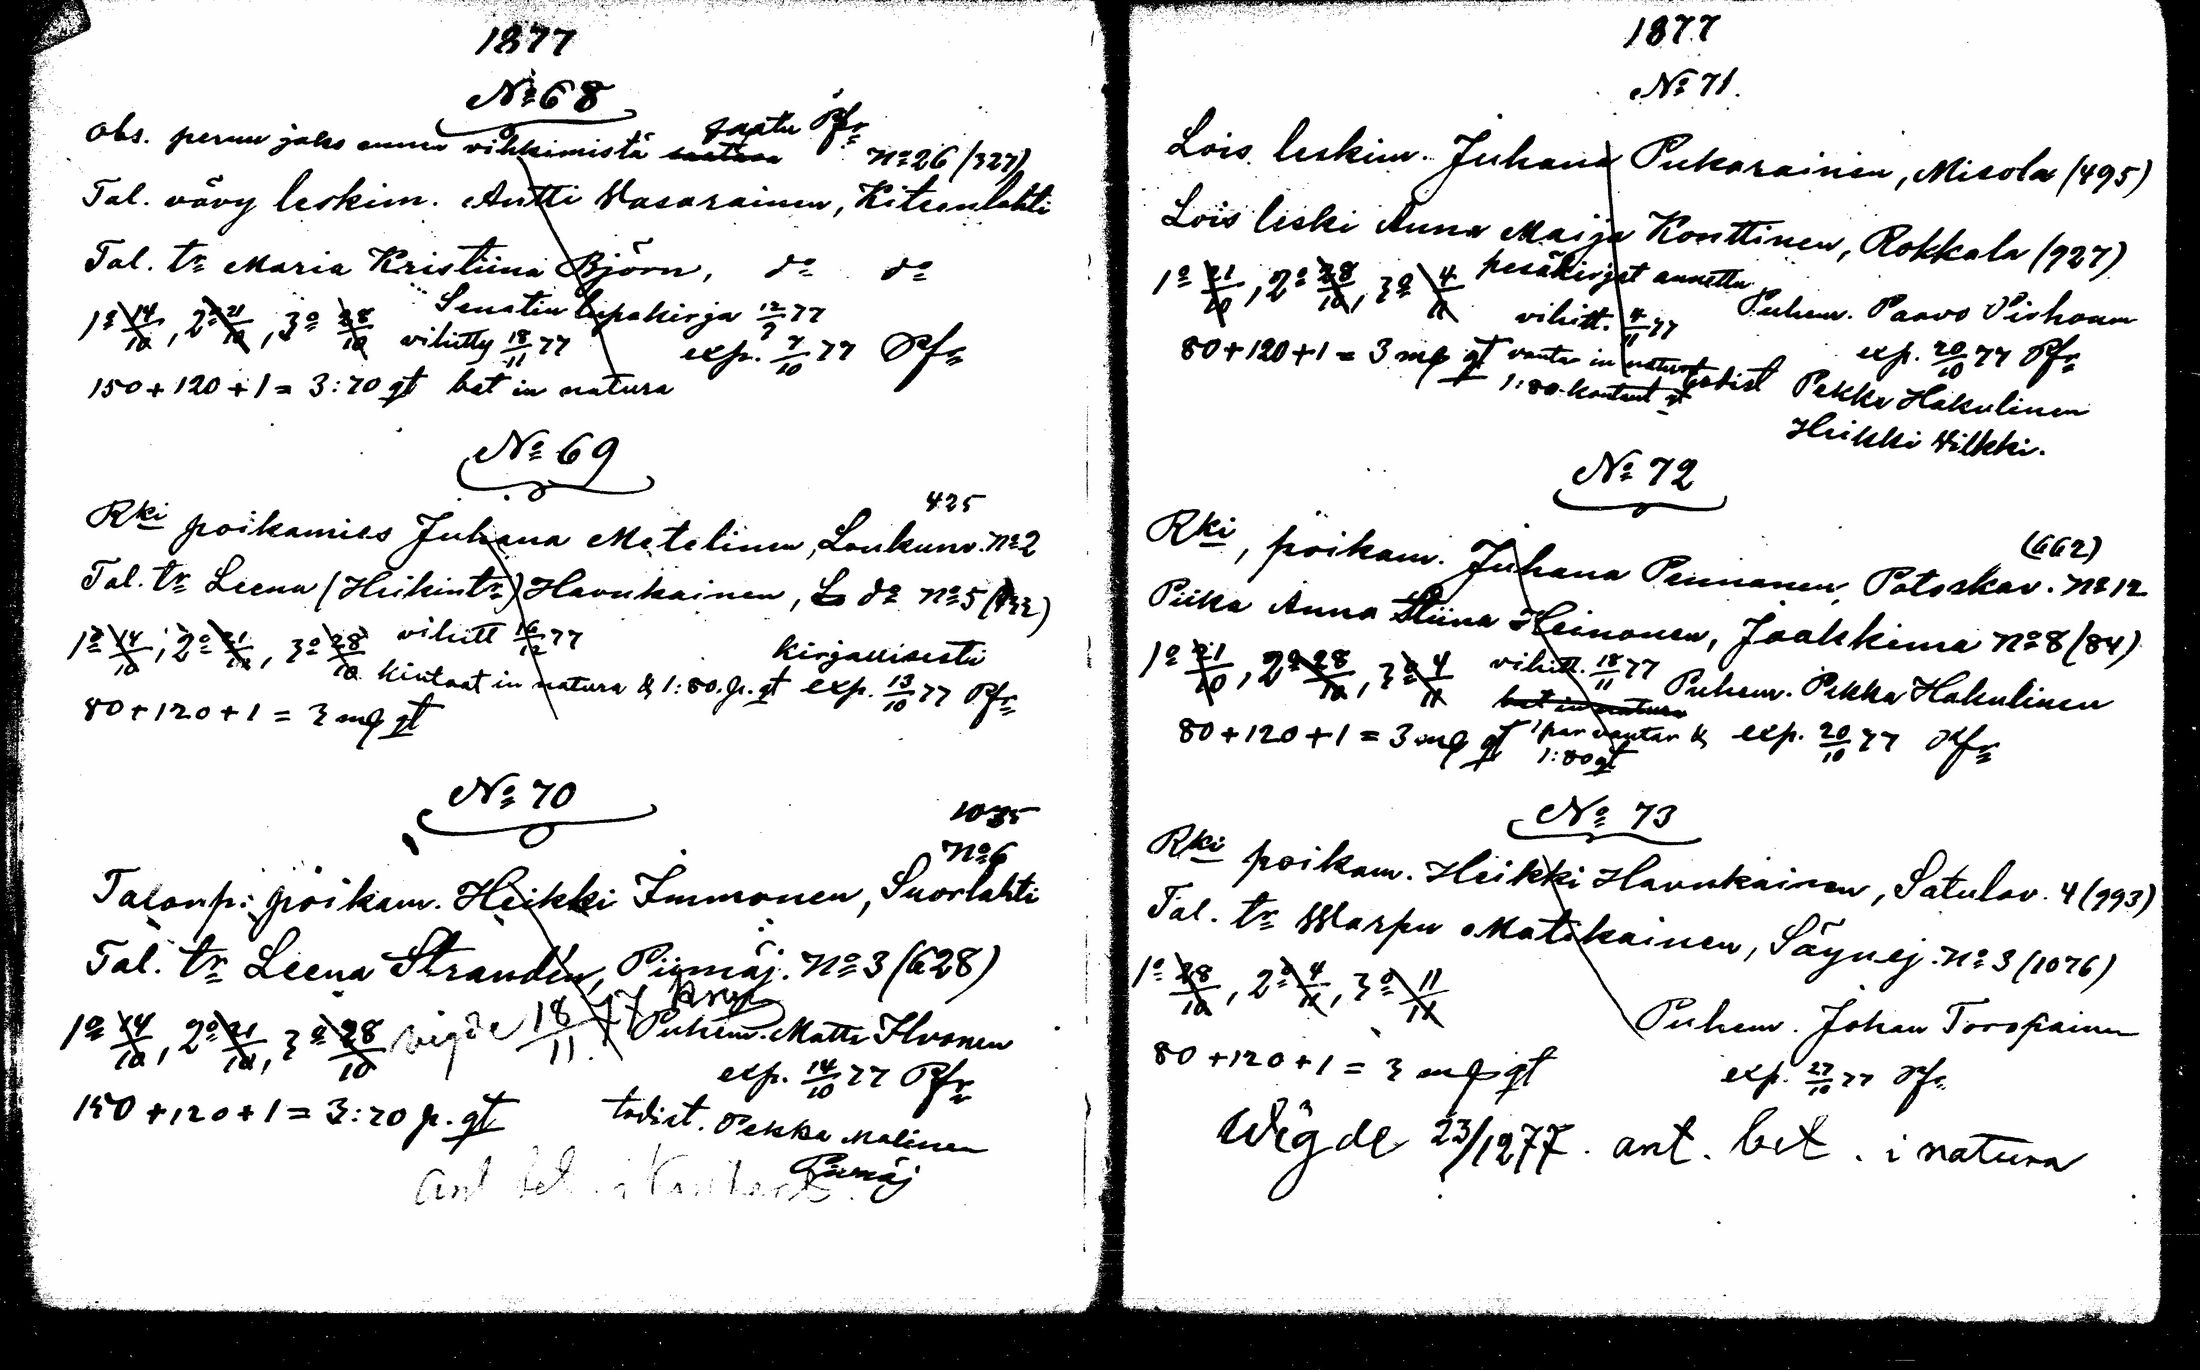 1877
№ 68
Obs. perun jako ennen vihkimistä saatu Pfr
№ 26 (327)
Tal. vävy leskim. Antti Wasarainen, Kitsenlahti
Tal. tr Maria Kristiina Björn, do do
Senatin lupakirja 12/9 77
1o 14/10, 2o 21/10, 3o 28/10 vihitty 18/11 77 exp. 7/10 77 Pfr
150 + 120 + 1 = 3:70 gt bet in natura
№ 69
425
Rki poikamies Juhana Metelinen, Loukunv. №2
Tal. tr Leena (Heikintr) Havukainen, do №5
1o 14/10, 2o 21/10, 3o 28/10 vihitt 16/12 77 kirjallisesti
kintaat in natura & 1:80 p. gt exp. 13/10 77 Pfr
80 + 120 + 1 = 3 mk gt
№ 70
1035
№6
Talonp. poikam. Heikki Immonen, Suorlahti
Tal. tr Leena Strandén, Piimäj. №3 (628)
1o 14/10, 2o 21/10, 3o 28/10 vigde 18/11 77
Puhem. Matti Ilvonen
exp. 14/10 77 Pfr
150 + 120 + 1 = 3:70 p. gt todist. Pekka Malinen
Piimäj
ant bet i kontant
1877
№ 71.
Lois. leskim. Juhana Pukarainen, Misola (495)
Lois leski Anna Maija Konttinen, Rokkala (927)
1o 21/10, 2o 28/10, 3o 4/11 pesäkirjat annettu
vihitt. 4/11 77 Puhem. Paavo
exp. 20/10 77 Pfr
80 + 120 + 1 = 3 mk gt vantar in natura
1:80 kontant gt todist Pekka Hakulinen
Heikki Wilkki.
№ 72
(662)
Rki, poikam. Juhana Pennanen, Potoskav. №12
Piika Anna Stiina Heinonen, Jaakkima №8 (84)
1o 21/10, 2o 28/10, 3o 4/11 vihitt. 18/11 77 Puhem. Pekka Hakulinen
bet in natura
80 + 120 + 1 = 3 mk gt 1 par vantar & exp. 20/10 77 Pfr
1:80 gt
№ 73
Rki poikam. Heikki Havukainen, Satulav. 4 (993)
Tal. tr Warpu Matikainen, Säynej. №3 (1076)
1o 28/10, 2o 4/11, 3o 11/11
Puhem. Johan Toropainen
80 + 120 + 1 = 3 mk gt exp. 27/10 77 Pfr
Wigde 23/12 77. ant. bet. i natura